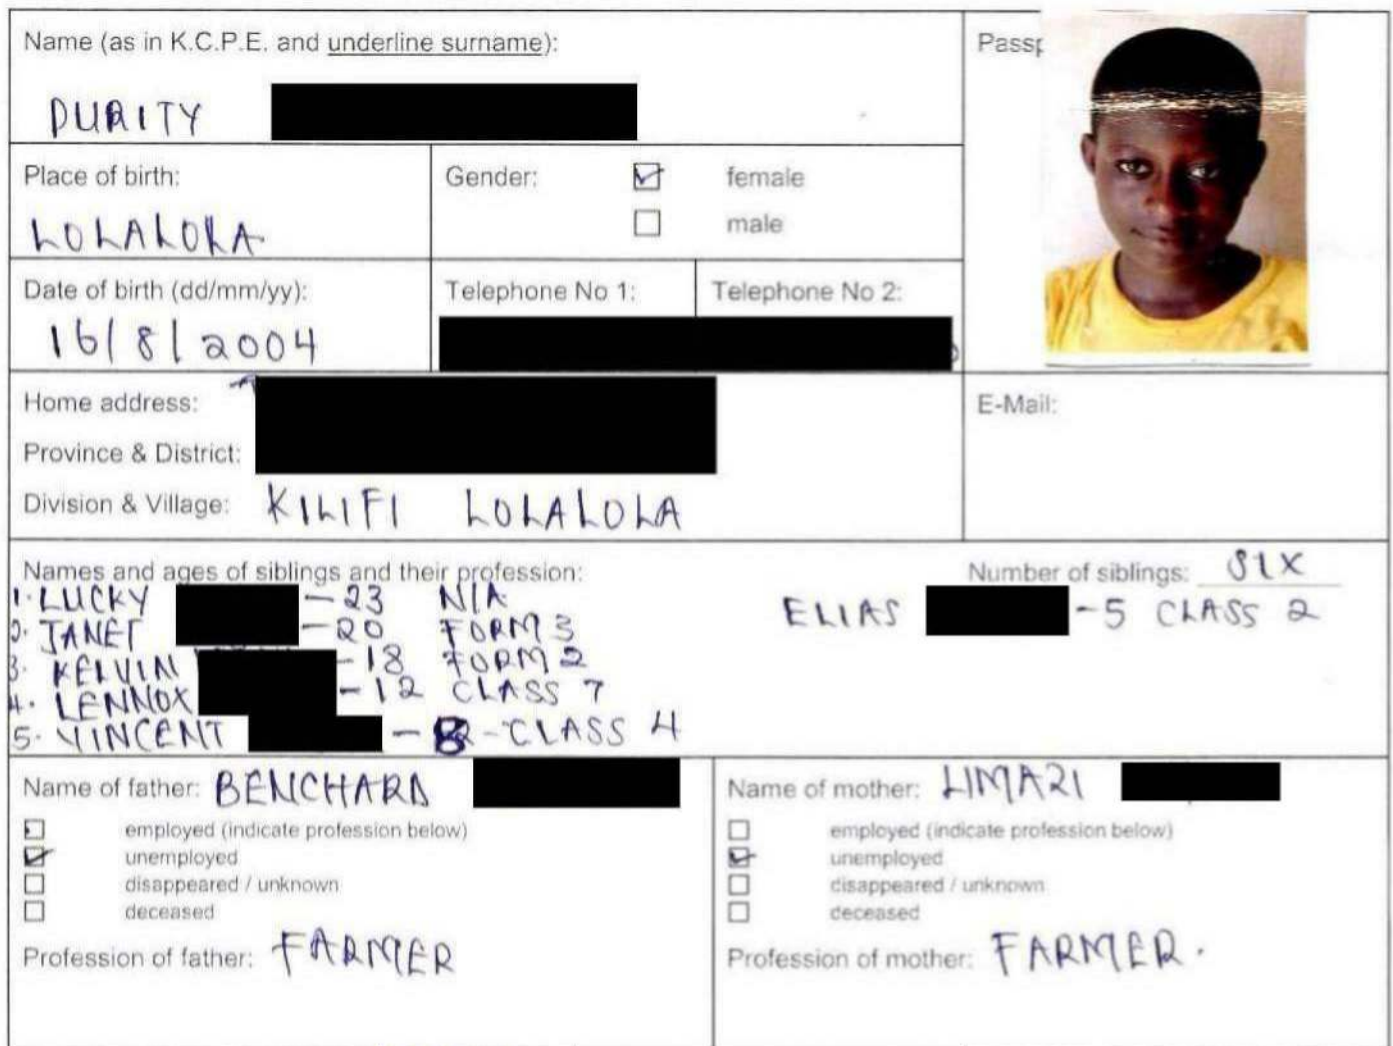 Name (as in K.C.P.E. and underline surname):
PURITY
Passp
Place of birth:
LOLALOLA
Gender:
female
male
Date of birth (dd/mm/yy):
16/8/2004
Telephone No 1:
Telephone No 2:
Home address:
Province & District:
Division & Village: KILIFI LOLALOLA
E-Mail:
Names and ages of siblings and their profession:
Number of siblings: SIX
1. LUCKY - 23 N/A
2. JANET - 20 FORM 3
3. KELVIN - 18 FORM 2
4. LENNOX - 12 CLASS 7
5. VINCENT - 8 - CLASS 4
ELIAS - 5 CLASS 2
Name of father: BENCHARD
employed (indicate profession below)
unemployed
disappeared / unknown
deceased
Profession of father: FARMER
Name of mother: LIMAZI
employed (indicate profession below)
unemployed
disappeared / unknown
deceased
Profession of mother: FARMER.